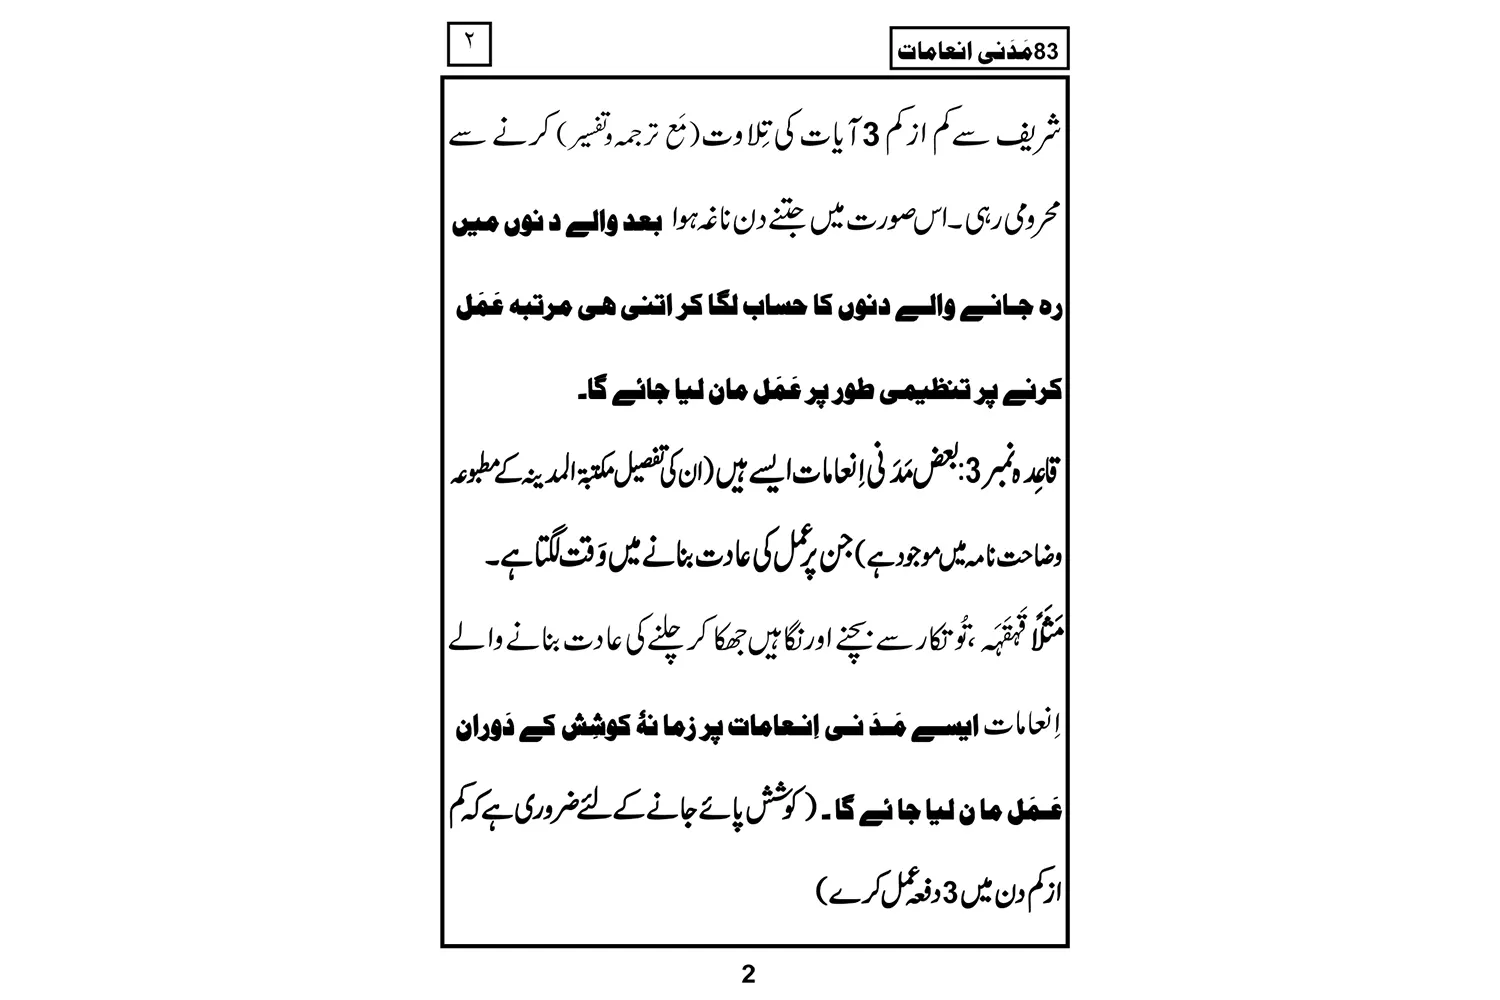 83مَدَنی انعامات
۲
شریف سے کم از کم 3 آیات کی تِلاوت (مَع ترجمہ و تفسیر) کرنے سے
محرومی رہی۔ اس صورت میں جتنے دن ناغہ ہوا بعد والے دنوں میں
رہ جانے والے دنوں کا حساب لگا کر اتنی ھی مرتبہ عَمَل
کرنے پر تنظیمی طور پر عَمَل مان لیا جائے گا۔
قاعِدہ نمبر 3: بعض مَدَنی اِنعامات ایسے ہیں (ان کی تفصیل مکتبۃ المدینہ کے مطبوعہ
وضاحت نامہ میں موجود ہے) جن پر عمل کی عادت بنانے میں وَقت لگتا ہے۔
مَثَلاً قَہقَہَہ، تُو تکار سے بچنے اور نگاہیں جھکا کر چلنے کی عادت بنانے والے
اِنعامات ایسے مَدَنی اِنعامات پر زمانۂ کوشِش کے دَوران
عَمَل مان لیا جائے گا۔ (کوشش پائے جانے کے لئے ضروری ہے کہ کم
از کم دن میں 3 دفعہ عمل کرے)
2